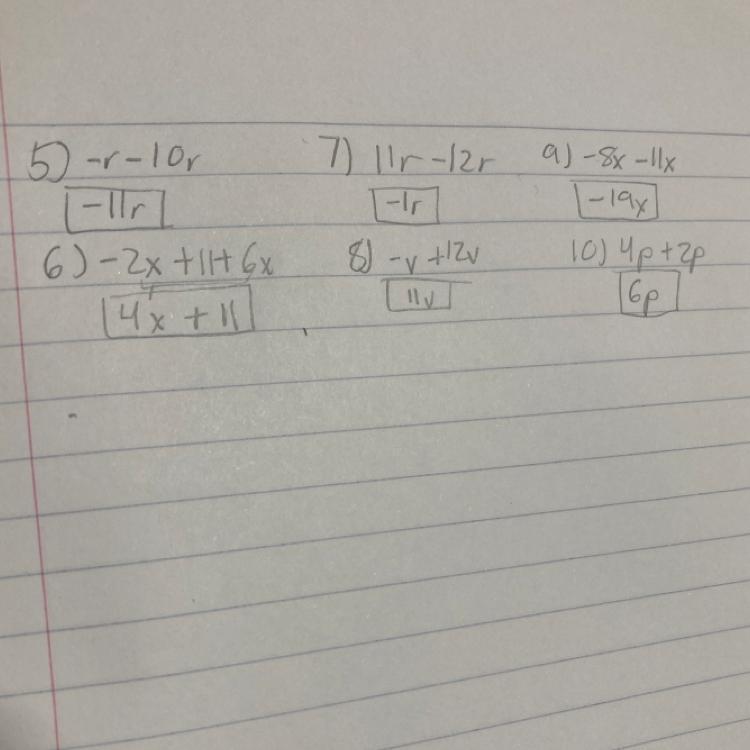 5) -r - 10r 7) 11r - 12r 9) -8x - 11x
-11r -1r -19x
6) -2x + 11 + 6x 8) -v + 12v 10) 4p + 2p
4x + 11 11v 6p